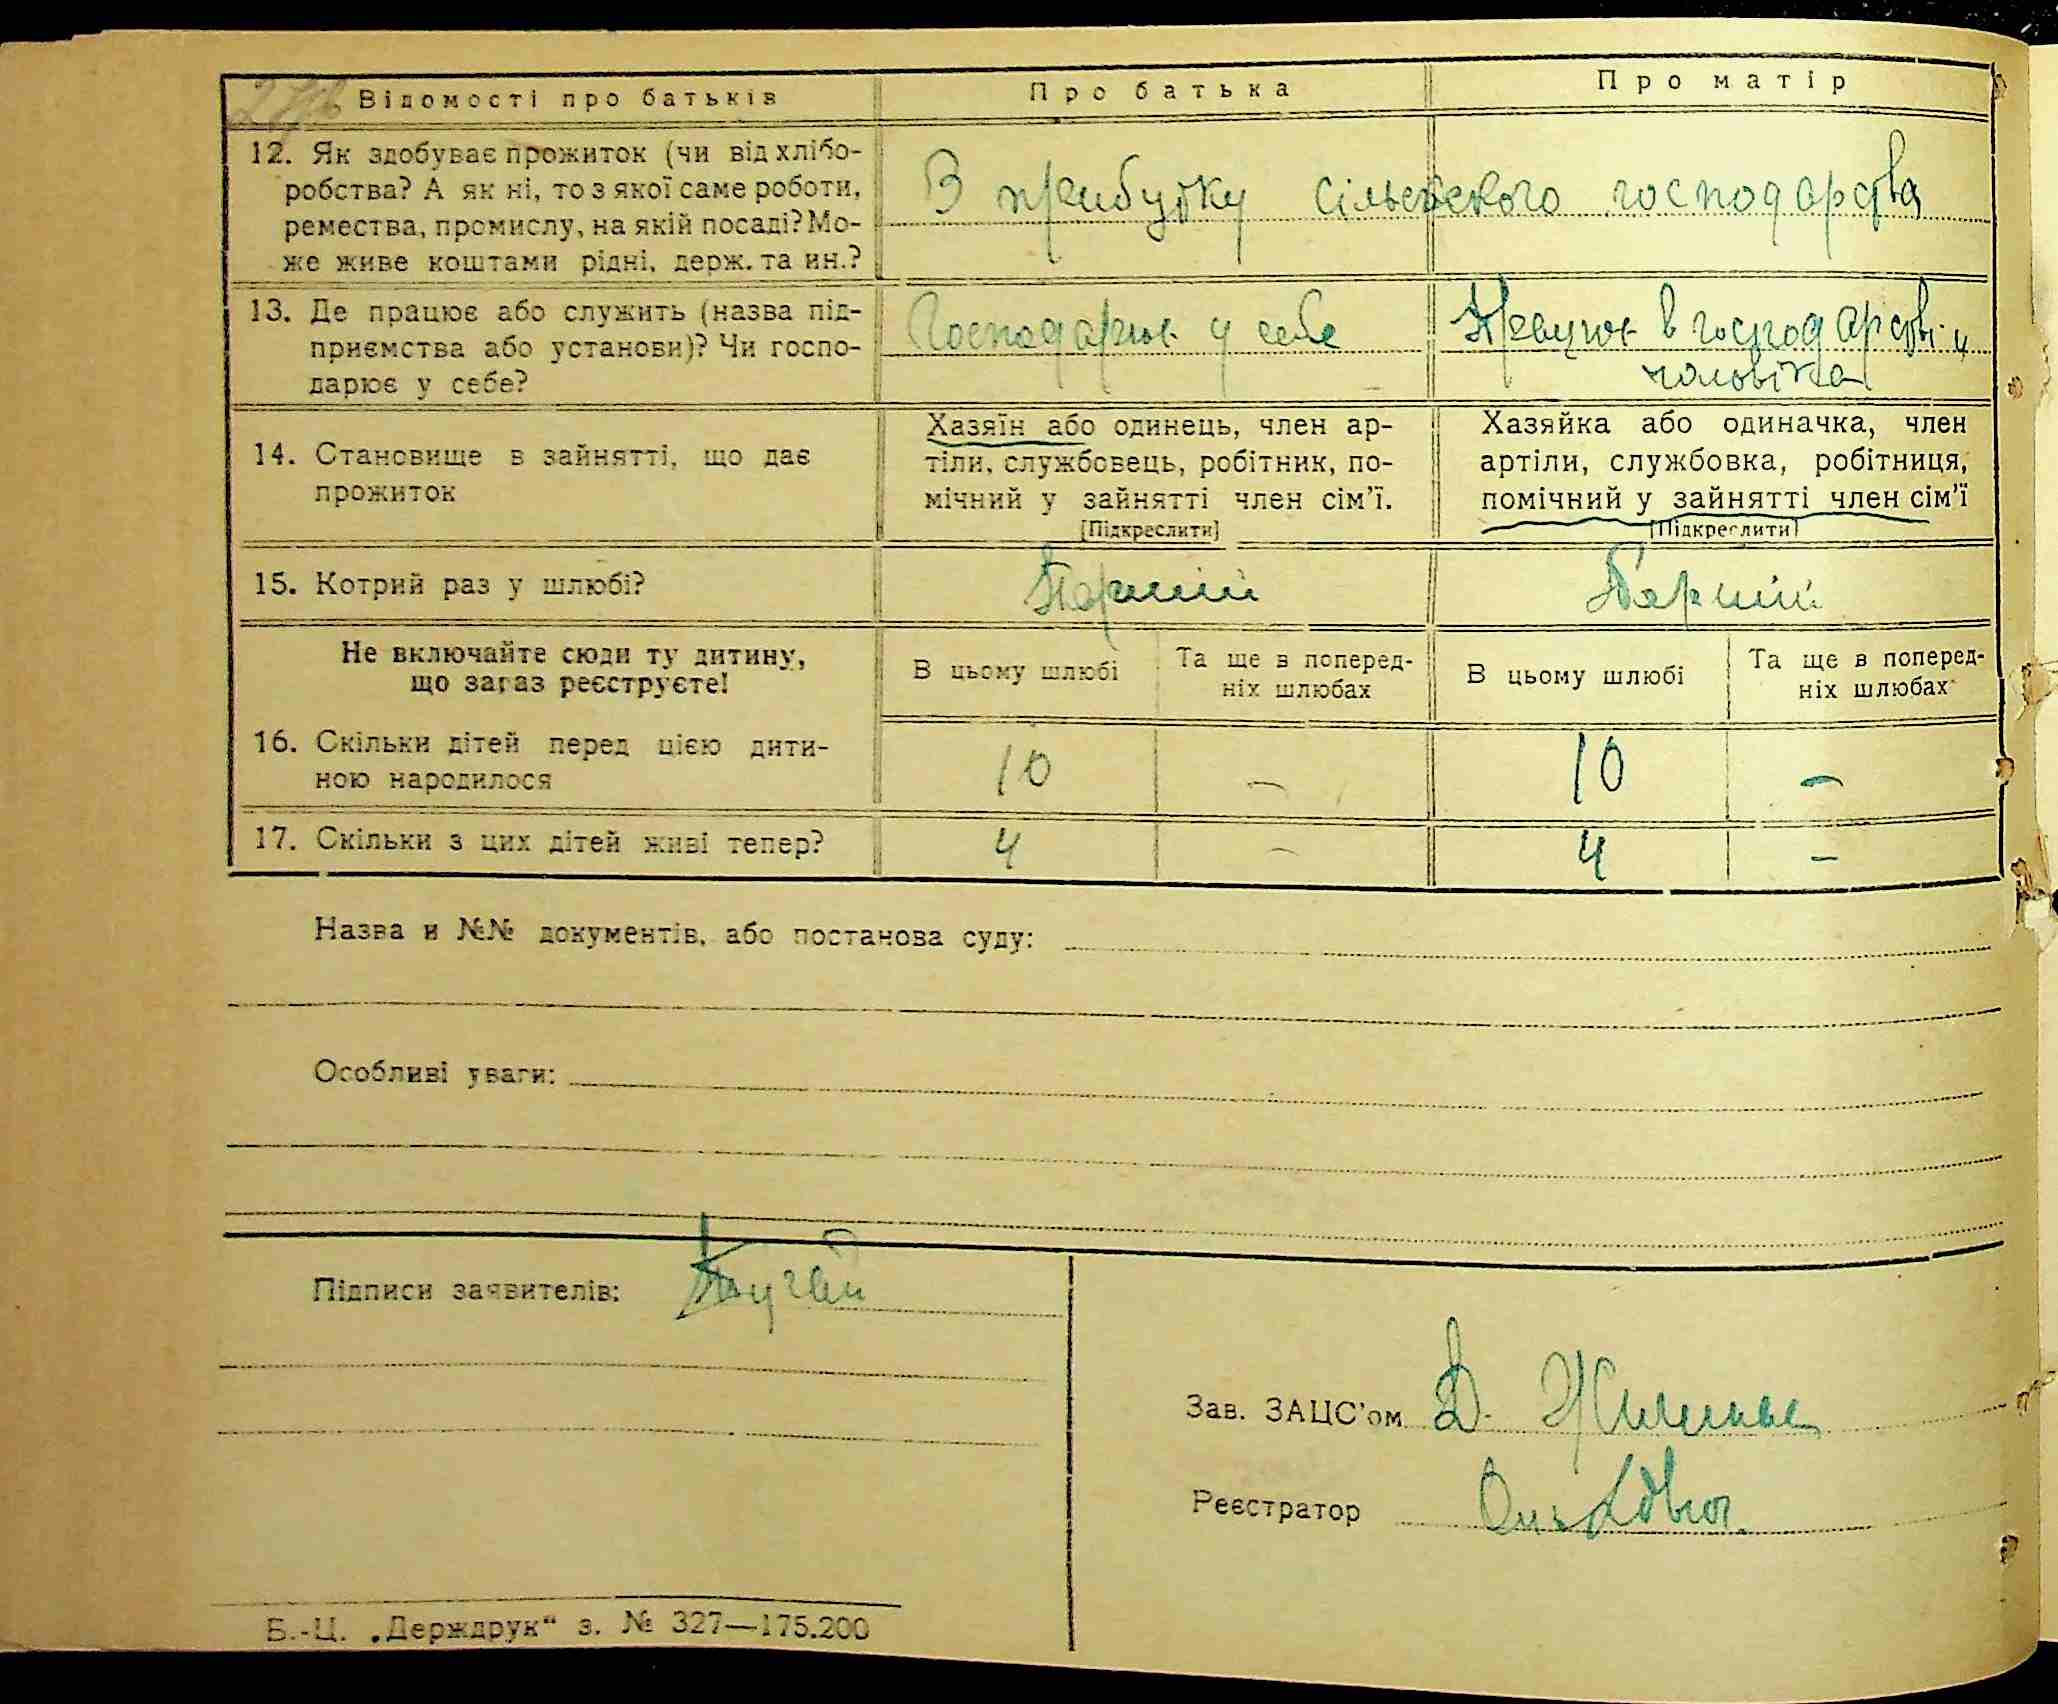 Відомості про батьків
Про батька
Про матір
12. Як здобуває прожиток (чи від хлібо-
робства? А як ні, то з якої саме роботи,
ремества, промислу, на якій посаді? Мо-
же живе коштами рідні, держ. та ин.?
З прибутку сільського господарства
13. Де працює або служить (назва під-
приємства або установи)? Чи госпо-
дарює у себе?
Господарює у себе
Працює в господарстві у
чоловіка
14. Становище в зайнятті, що дає
прожиток
Хазяїн або одинець, член ар-
тіли, службовець, робітник, по-
мічний у зайнятті член сім'ї.
[Підкреслити]
Хазяйка або одиначка, член
артіли, службовка, робітниця,
помічний у зайнятті член сім'ї
[Підкреслити]
15. Котрий раз у шлюбі?
Перший
Перший
Не включайте сюди ту дитину,
що загаз реєструєте!
В цьому шлюбі
Та ще в поперед-
ніх шлюбах
В цьому шлюбі
Та ще в поперед-
ніх шлюбах
16. Скільки дітей перед цією дити-
ною народилося
10
–
10
–
17. Скільки з цих дітей живі тепер?
4
–
4
–
Назва и №№ документів, або постанова суду:
Особливі уваги:
Підписи заявителів:
Зав. ЗАЦС'ом Д.
Реєстратор
Б.-Ц. „Держдрук“ з. № 327—175.200